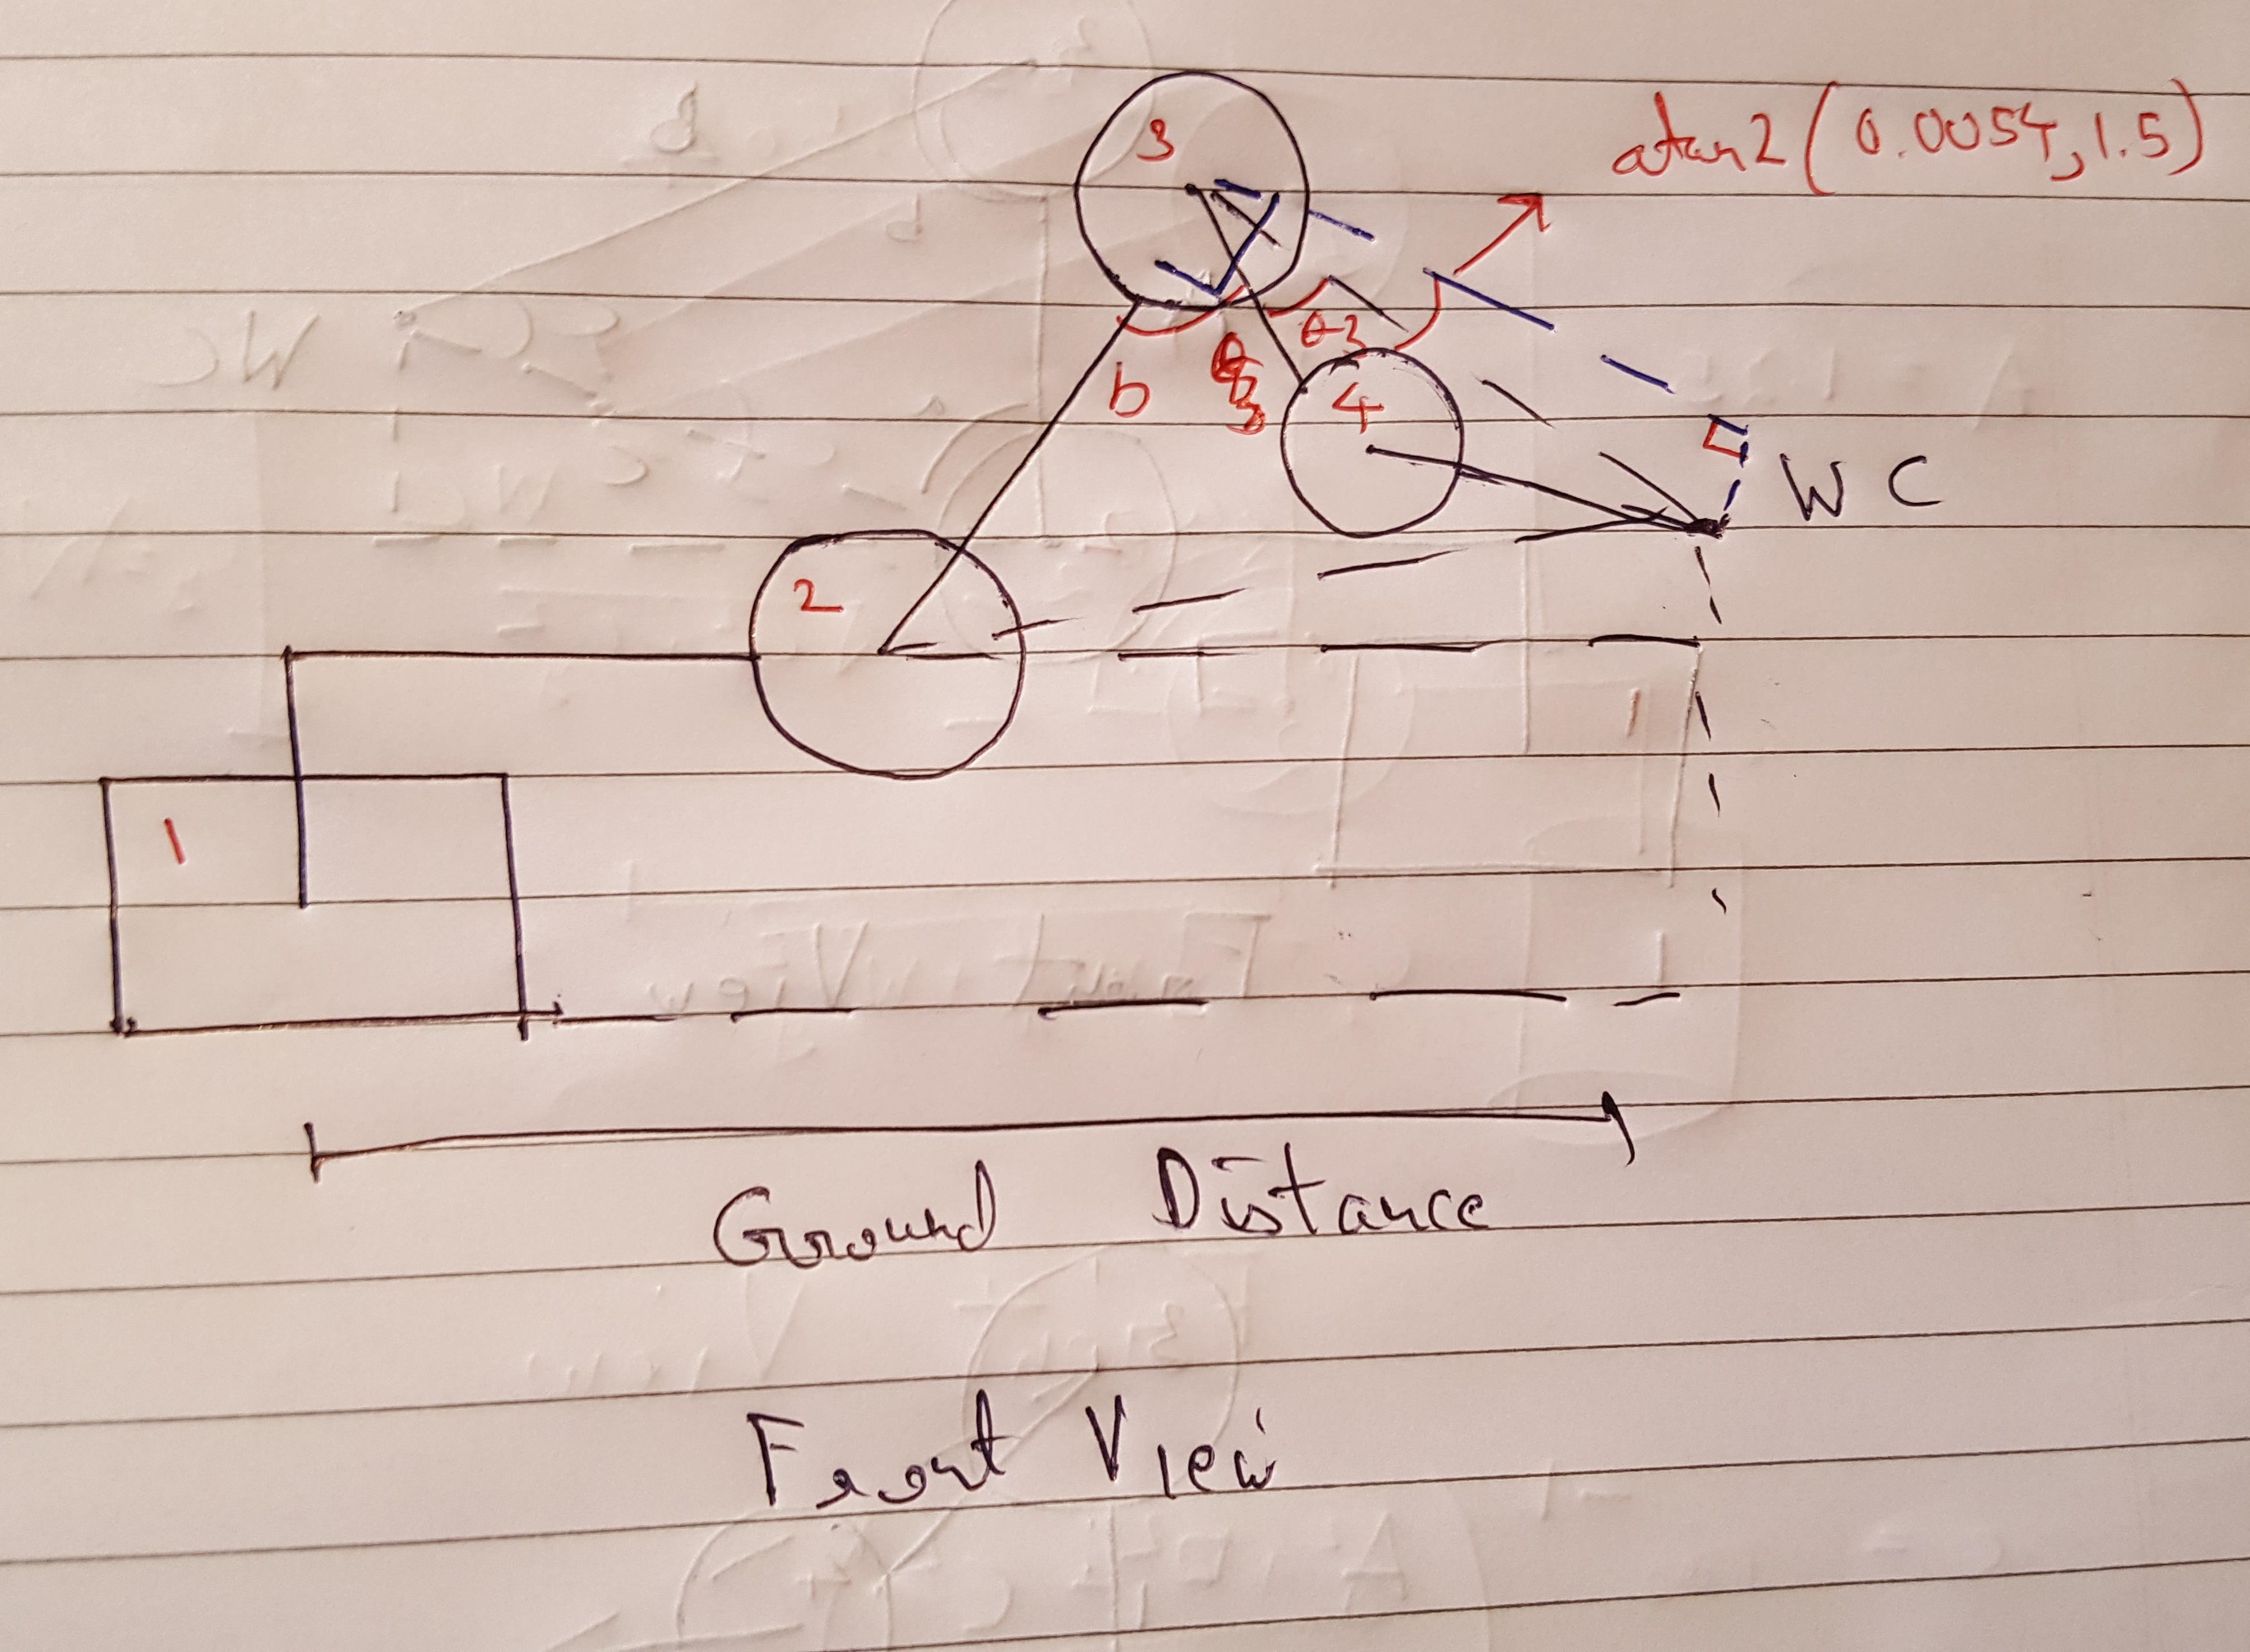 atan2(0.0054,1.5)
3
θ3
b
4
WC
2
1
Ground Distance
Front View